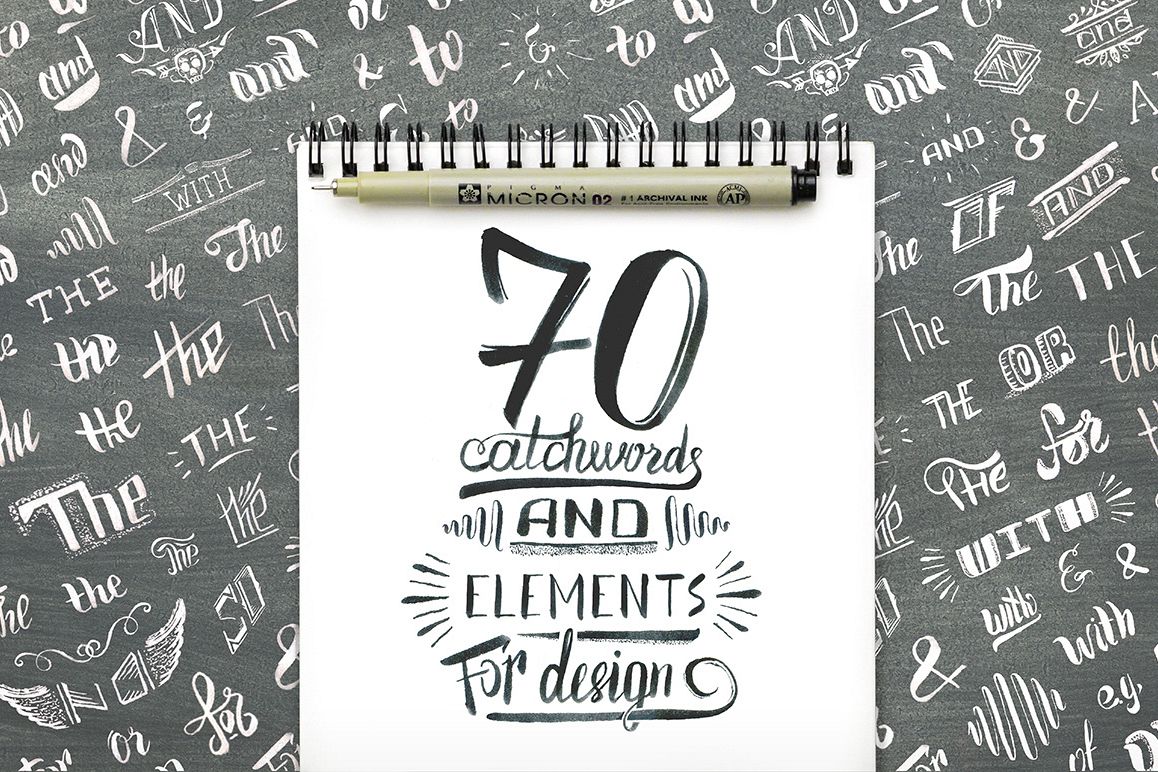 to AND & to & to AND & and
and and & and and AND
& & to AND & AND
and WITH AND & A
PIGMA
MICRON 02 #1 ARCHIVAL INK AP
The OF AND
THE the The THE
the the The OR the
70
the THE THE for
catchwords
The the The WITH
AND
the & &
ELEMENTS
the SO with with
For design
AND for & e.g
or of or